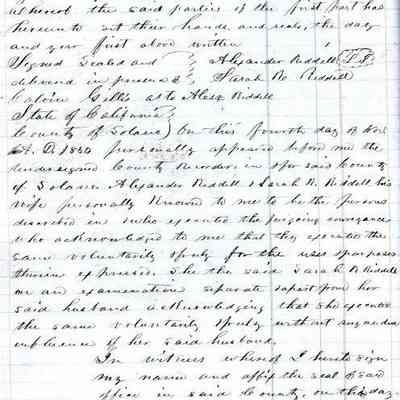 whereof the said parties of the first part has
hereunto set their hands and seals, the day
and year first above written
Signed Sealed and } Alexander Riddell L S
delivered in presence } Sarah R. Riddell
Calvin Gillis as to Alexr Riddell
State of California }
County of Solano ) On this fourth day of
A. D. 1850 personally appeared before me the
undersigned County Recorder in & for said County
of Solano Alexander Riddell & Sarah R. Riddell his
wife personally Known to me to be the persons
described in & who executed the forgoing conveyance
who acknowledged to me that they executed the
same voluntarily & freely for the uses & purposes
therein expressed. She the said Sarah R Riddell
on an examination separate & apart from her
said husband acknowledging that she executed
the same voluntarily & freely without any undue
influence of her said husband.
In witness whereof I hereto sign
my name and affix the seal of said
office in said County, on this day